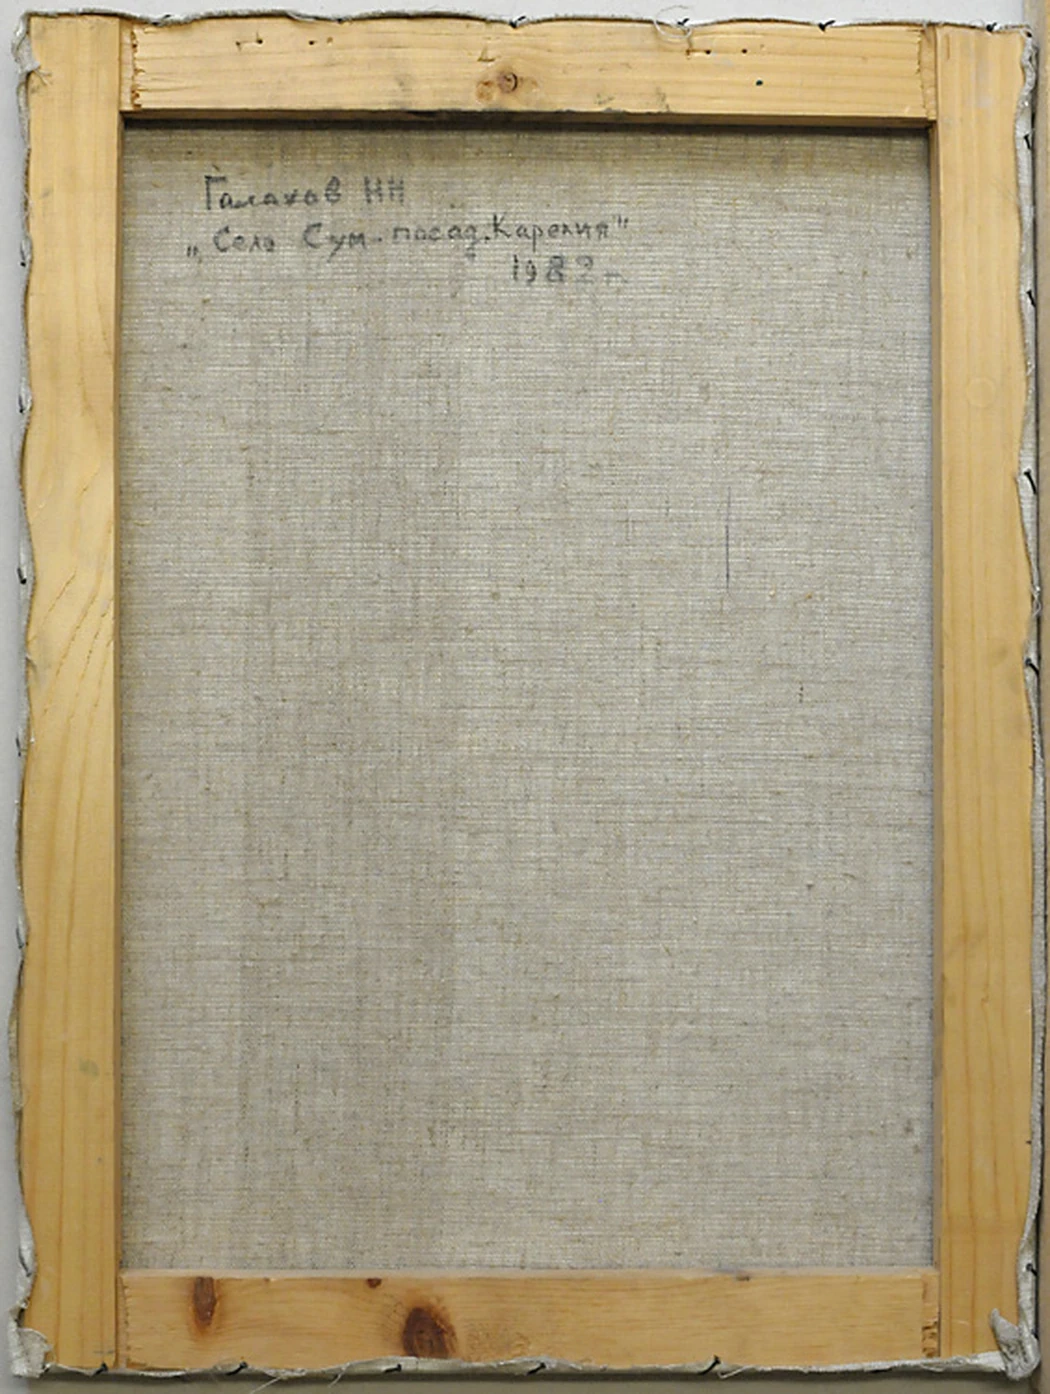 Галахов НН
„Село Сум. посад. Карелия"
1982 г.